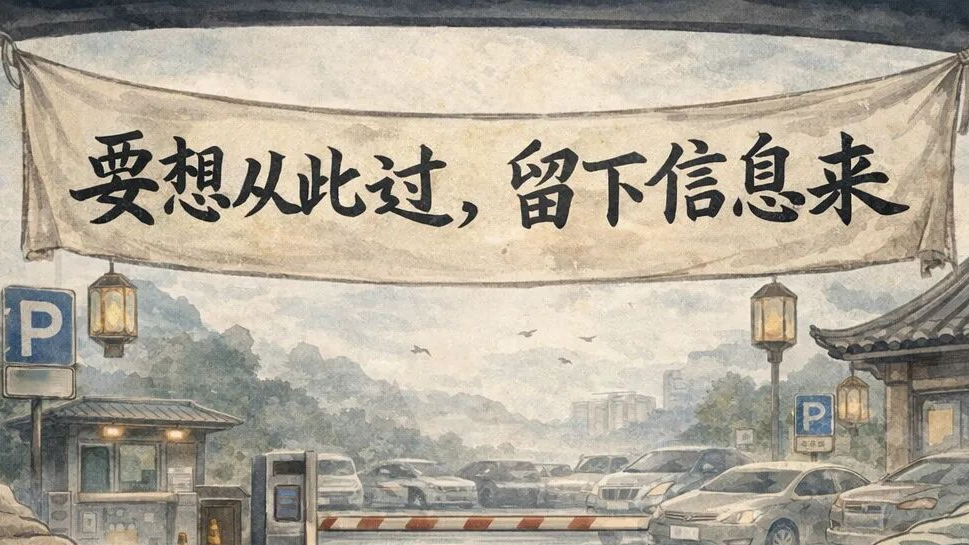 要想从此过，留下信息来
P
P